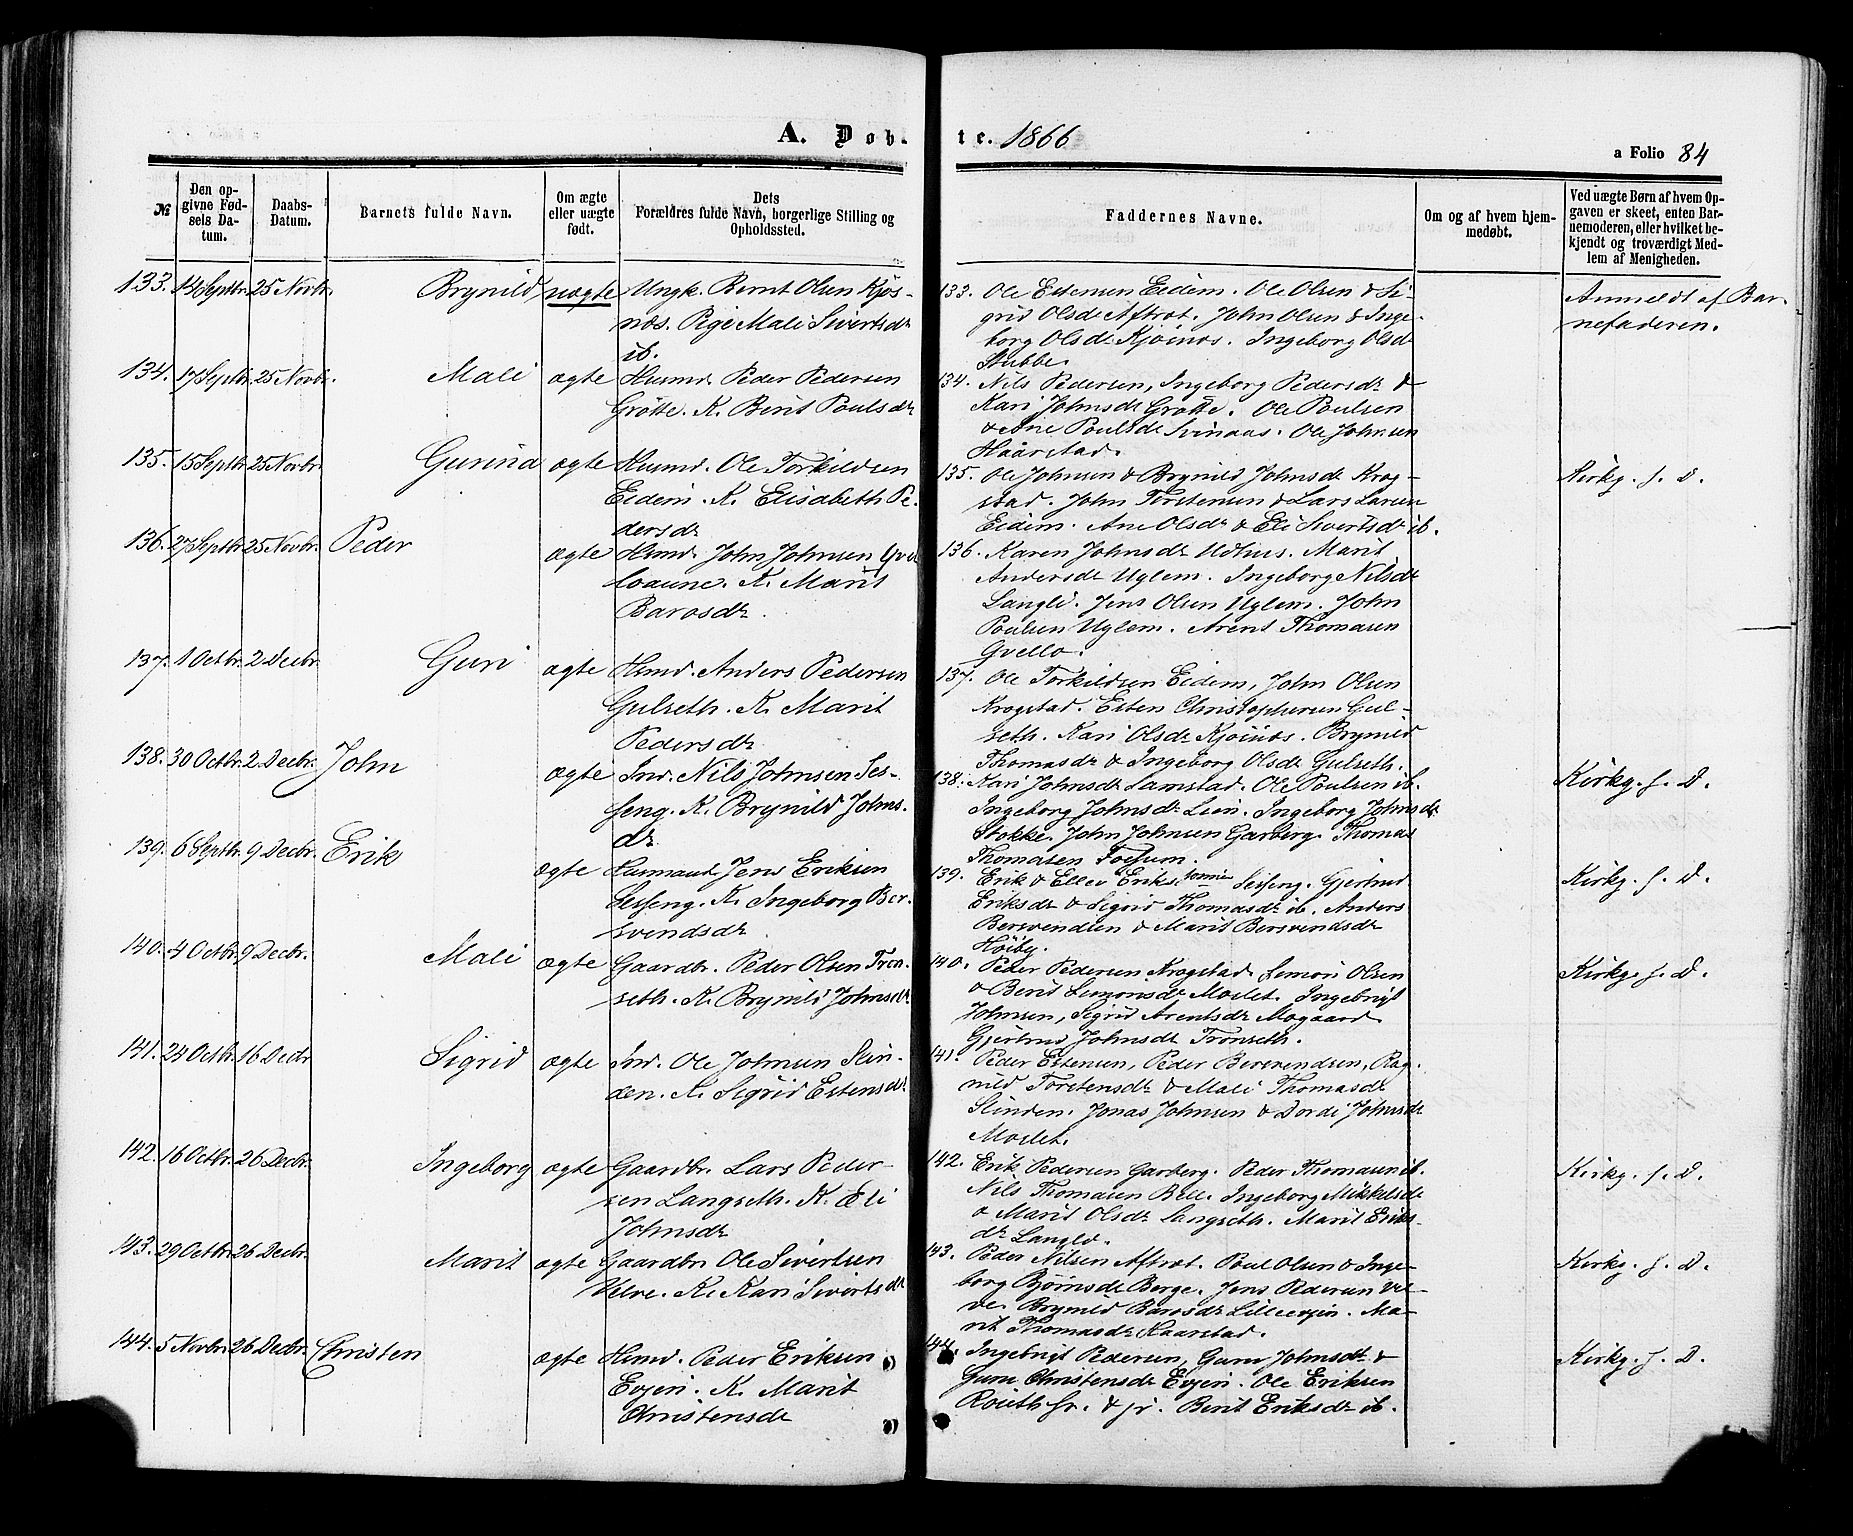 A. Døb-
te. 1866
a Folio 84
№
Den op-
givne Fød-
sels Da-
tum.
Daabs-
Datum.
Barnets fulde Navn.
Om ægte
eller uægte
født.
Dets
Forældres fulde Navn, borgerlige Stilling og
Opholdssted.
Faddernes Navne.
Om og af hvem hjem-
medøbt.
Ved uægte Børn af hvem Op-
gaven er skeet, enten Bar-
nemoderen, eller hvilket be-
kjendt og troværdigt Med-
lem af Menigheden.
133. 14 Septbr. 25 Novbr. Brynild uægte Ungk. Bernt Olsen Kjøs-
næs. Pige Mali Sivertsdr
ib.
133. Ole Estensen Eidem. Ole Olsen & Si-
grid Olsdr Aftrøt. John Olsen & Inge-
borg Olsdr Kjøsnæs. Ingeborg Olsd
Stubbe.
Anmeldt af Bar-
nefaderen.
134. 17 Septbr. 25 Novbr. Mali ægte Husmd. Peder Pedersen
Grøtte. K. Berit Poulsdr
134. Nils Pedersen, Ingeborg Pedersdr &
Kari Johnsdr Grøtte. Ole Poulsen
& Ane Poulsdr Svinaas. Ole Johnsen
Haarstad.
135. 15 Septbr. 25 Novbr. Gurina ægte Husmd. Ole Torkildsen
Eidem. K. Elisabeth Pe-
dersdr
135. Ole Johnsen & Brynild Johnsdr Krog-
stad. John Torstensen & Lars Larsen
Eidem. Ane Olsdr & Eli Sivertsdr ib.
Kirkg. f. D.
136. 27 Septbr. 25 Novbr. Peder ægte Husmd. John Johnsen Qvel-
loaune. K. Marit
Barosdr.
136. Karen Johnsdr Udhus. Marit
Andersdr Uglem. Ingeborg Nilsdr
Langli. Jens Olsen Uglem. John
Poulsen Uglem. Arent Thomasen
Qvello.
137. 1 Octbr. 2 Decbr. Guri ægte Husmd. Anders Pedersen
Gulseth. K. Marit
Pedersdr
137. Ole Torkildsen Eidem, John Olsen
Krogstad. Esten Christophersen Gul-
seth. Kari Olsdr Kjøsnæs. Brynild
Thomasdr & Ingeborg Olsdr Gulseth.
138. 30 Octbr. 2 Decbr. John ægte Ind. Nils Johnsen Ses-
seng. K. Brynild Johns-
dr.
138. Kari Johnsdr Samstad. Ole Poulsen ib.
Ingeborg Johnsdr Lien. Ingeborg Johnsdr
Stokke. John Johnsen Garberg. Thomas
Thomasen Fossum.
Kirkg. f. D.
139. 6 Septbr. 9 Decbr. Erik ægte Husmand Jens Eriksen
Sesseng. K. Ingeborg Ber-
svendsdr
139. Erik & Ellev Eriks-sønner Sesseng. Gjertrud
Eriksdr & Sigrid Thomasdr ib. Anders
Bersvendsen & Marit Bersvendsdr
Høiby.
Kirkg. f. D.
140. 4 Octbr. 9 Decbr. Mali ægte Gaardbr. Peder Olsen Tron-
seth. K. Brynild Johnsdr
140. Peder Pedersen Krogstad. Simon Olsen
& Berit Simonsdr Moslet. Ingebrigt
Johnsen, Sigrid Arentsdr Mogaard.
Gjertrud Johnsdr Tronseth.
Kirkg. f. D.
141. 24 Octbr. 16 Decbr Sigrid ægte Ind. Ole Johnsen Slin-
den. K. Sigrid Estensdr
141. Peder Estensen, Peder Bersvendsen, Rag-
nild Torstensdr & Mali Thomasdr
Slinden. Jonas Johnsen & Dordi Johnsdr
Moslet.
142. 16 Octbr. 26 Decbr. Ingeborg ægte Gaardbr. Lars Peder-
sen Langseth. K. Eli
Johnsdr
142. Erik Pedersen Garberg. Peder Thomasen ib.
Nils Thomasen Bell. Ingeborg Mikkelsdr
& Marit Olsdr Langseth. Marit Eriks-
dr Langli.
Kirkg. f. D.
143. 29 Octbr. 26 Decbr. Marit ægte Gaardbr Ole Sivertsen
Velve. K. Kari Sivertsdr
143. Peder Nilsen Aftrøt. Poul Olsen & Inge-
borg Bjørnsdr Berge. Jens Pedersen Vel-
ve. Brynild Barosdr Lilleevjen. Ma-
rit Thomasdr Haarstad.
Kirkg. f. D.
144. 5 Novbr. 26 Decbr. Christen ægte Husmd. Peder Eriksen
Evjen. K. Marit
Christensdr
144. Ingebrigt Pedersen, Guru Johnsdr &
Guru Christensdr Evjen. Ole Eriksen
Rolseth sr. & jr. Berit Eriksdr ib.
Kirkg. f. D.